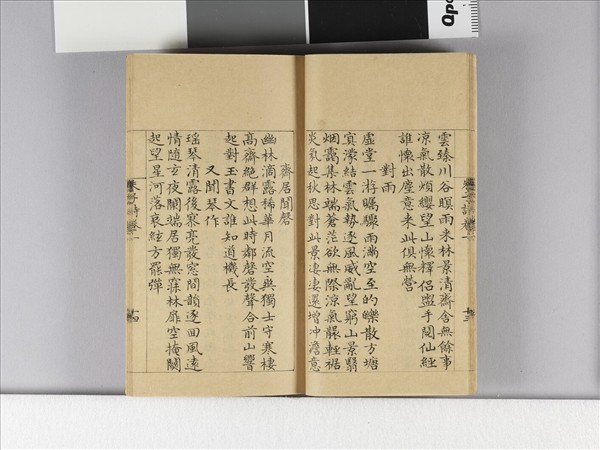 朱子詩卷一
十三
雲臻川谷暝雨来林景清齋舍無餘事
凉氣散煩纓望山懷釋侣盥手閱仙經
誰懷出塵意来此俱無營
對雨
虚堂一游矚驟雨滿空至的皪散方塘
冥濛結雲氣勢逐風威亂望窮山景翳
烟靄集林端蒼茫欲無際凉氣襲輕裾
炎氛起秋思對此景凄凄還增冲澹意
齋居聞磬
幽林滴露稀華月流空爽獨士守寒棲
高齋絶群想此時鄰磬發聲合前山響
起對玉書文誰知道機長
又聞琴作
瑶琴清露後寥亮發窓間韻逐回風遠
情隨玄夜闌端居獨無寐林扉空掩關
起望星河落哀絃方罷彈
朱子詩卷一
十四